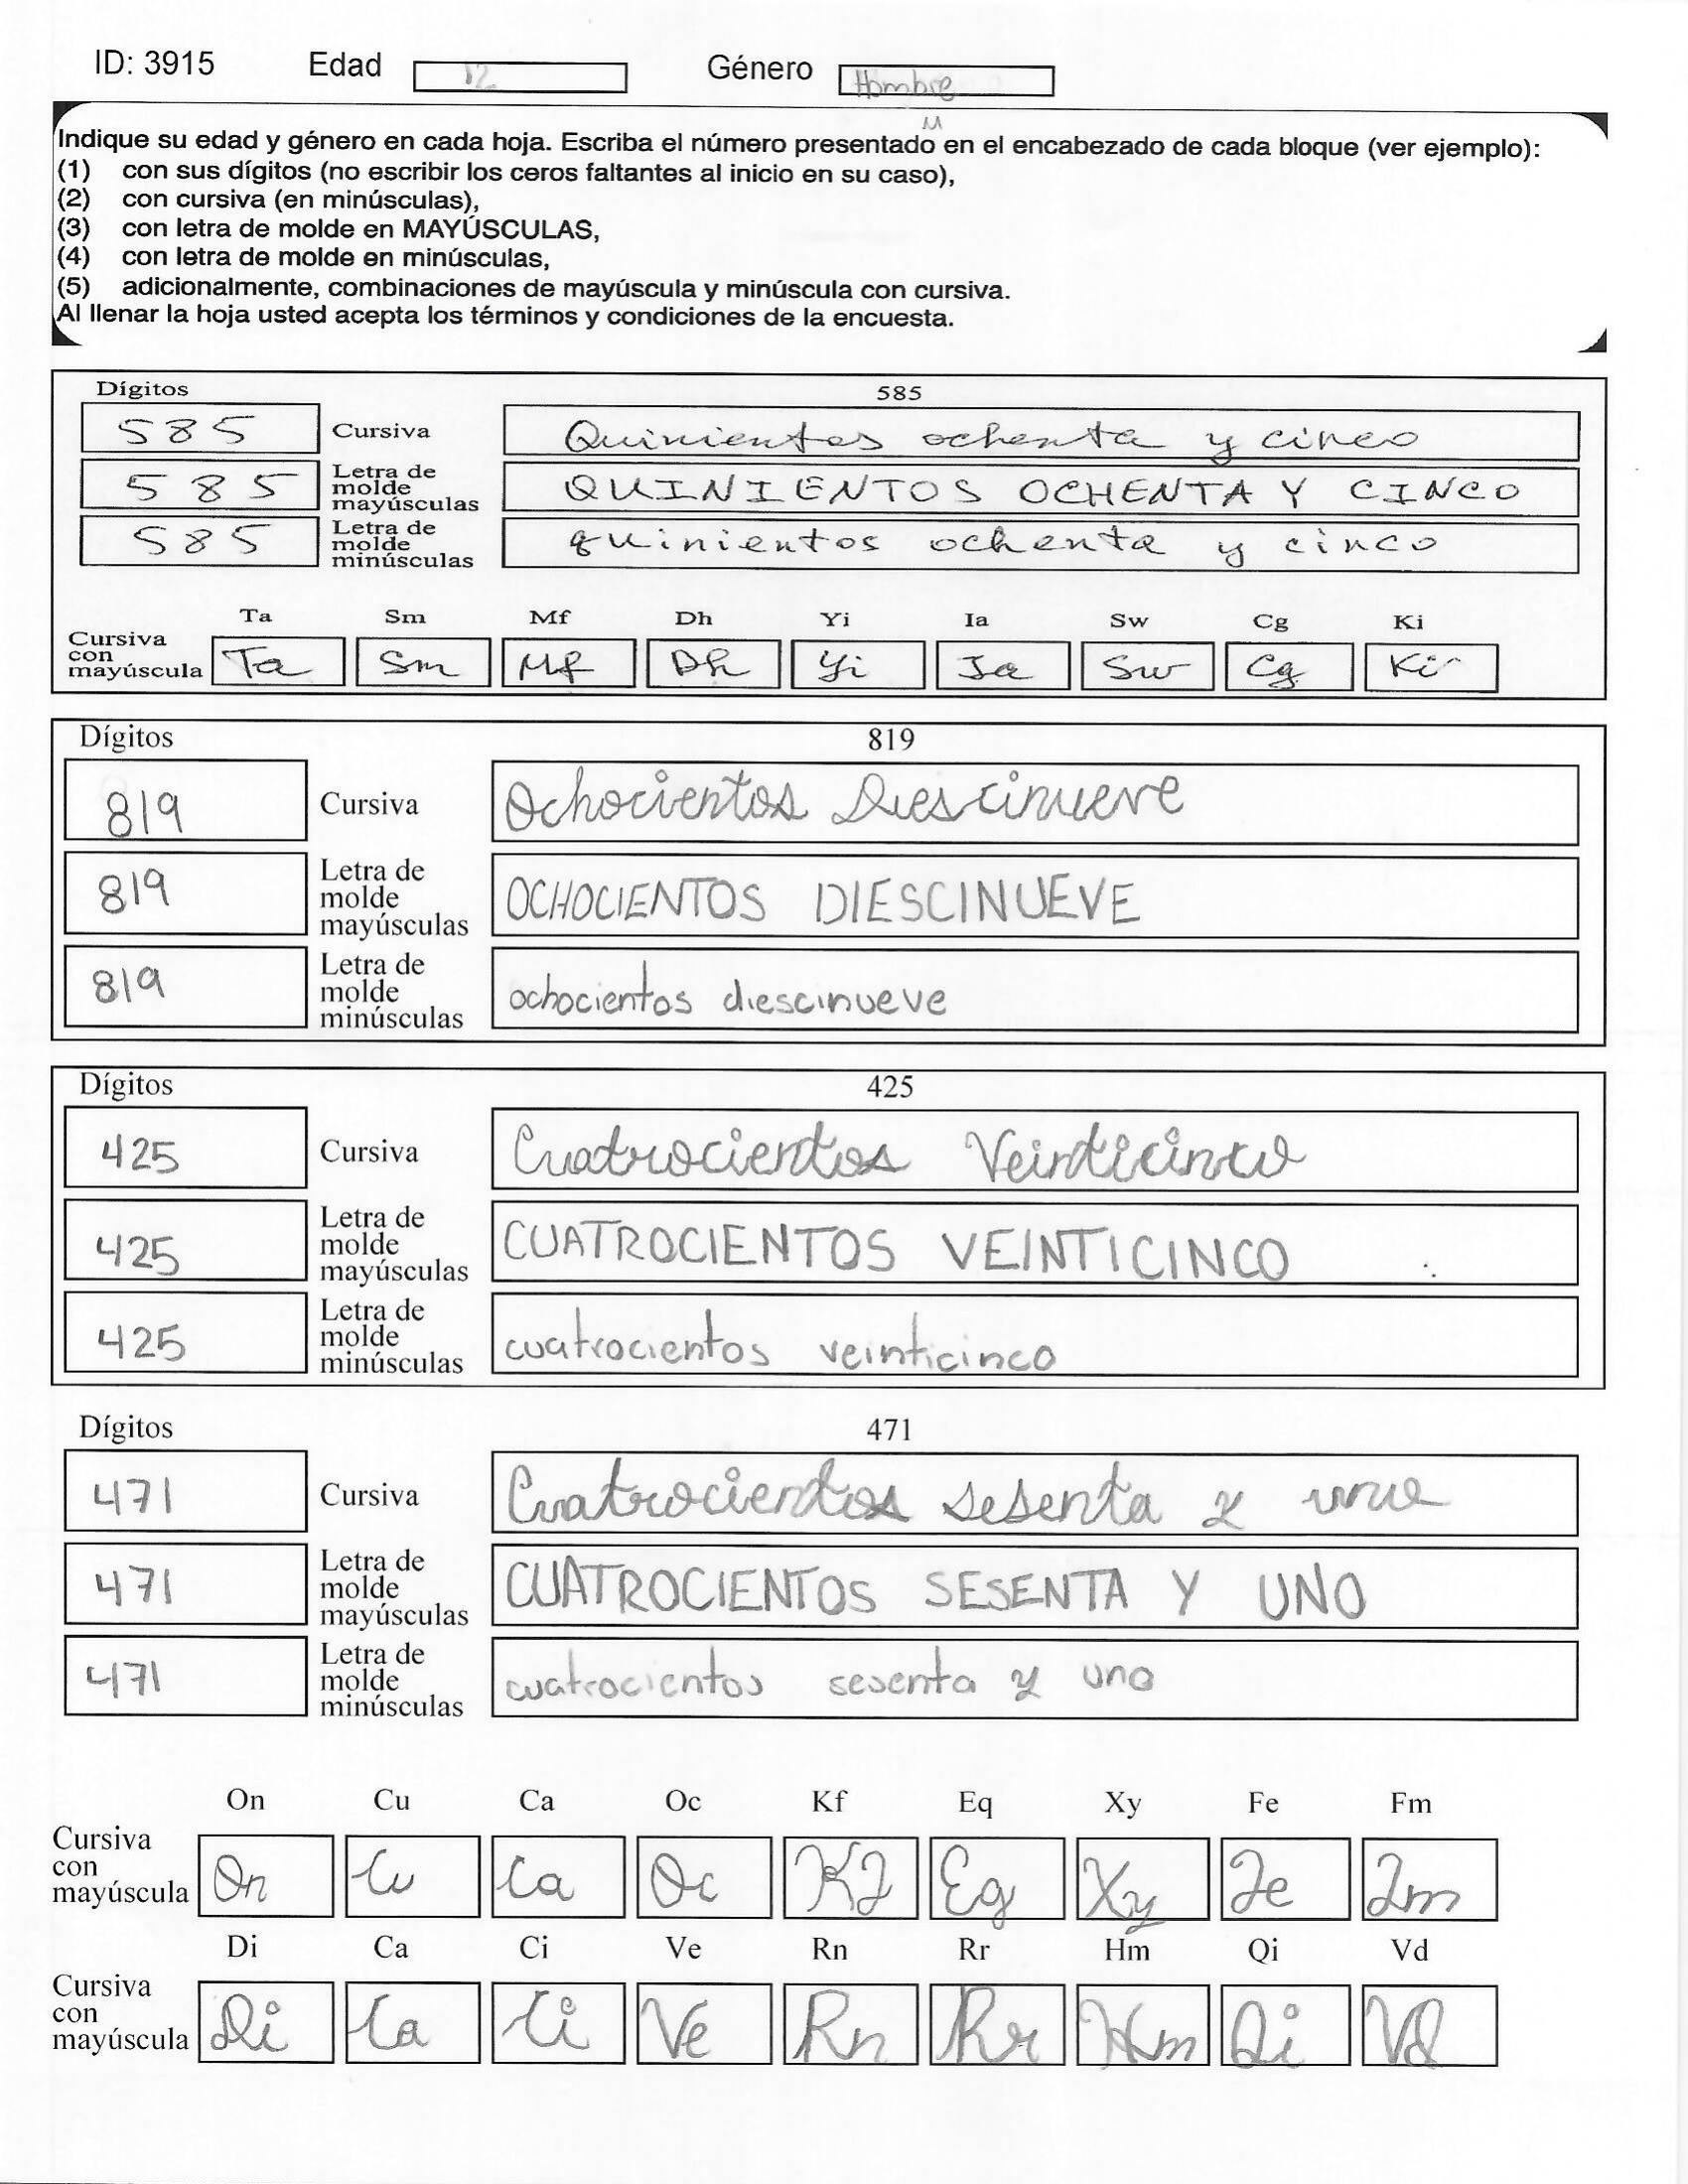 ID: 3915 Edad 12 Género Hombre
M
Indique su edad y género en cada hoja. Escriba el número presentado en el encabezado de cada bloque (ver ejemplo):
(1) con sus dígitos (no escribir los ceros faltantes al inicio en su caso),
(2) con cursiva (en minúsculas),
(3) con letra de molde en MAYÚSCULAS,
(4) con letra de molde en minúsculas,
(5) adicionalmente, combinaciones de mayúscula y minúscula con cursiva.
Al llenar la hoja usted acepta los términos y condiciones de la encuesta.
Dígitos 585
585 Cursiva Quinientos ochenta y cinco
585 Letra de molde mayúsculas QUINIENTOS OCHENTA Y CINCO
585 Letra de molde minúsculas quinientos ochenta y cinco
Ta Sm Mf Dh Yi Ia Sw Cg Ki
Cursiva con mayúscula Ta Sm Mf Dh Yi Ia Sw Cg Ki
Dígitos 819
819 Cursiva Ochocientos Diescinueve
819 Letra de molde mayúsculas OCHOCIENTOS DIESCINUEVE
819 Letra de molde minúsculas ochocientos diescinueve
Dígitos 425
425 Cursiva Cuatrocientos Veinticinco
425 Letra de molde mayúsculas CUATROCIENTOS VEINTICINCO
425 Letra de molde minúsculas cuatrocientos veinticinco
Dígitos 471
471 Cursiva Cuatrocientos sesenta y uno
471 Letra de molde mayúsculas CUATROCIENTOS SESENTA Y UNO
471 Letra de molde minúsculas cuatrocientos sesenta y uno
On Cu Ca Oc Kf Eq Xy Fe Fm
Cursiva con mayúscula On Cu Ca Oc Kf Eq Xy Fe Fm
Di Ca Ci Ve Rn Rr Hm Qi Vd
Cursiva con mayúscula Di Ca Ci Ve Rn Rr Hm Qi Vd